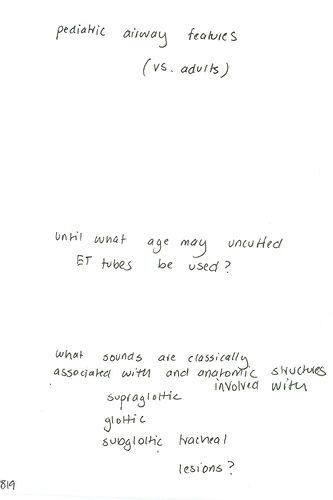 pediatric airway features
(vs. adults)
until what age may uncuffed
ET tubes be used?
what sounds are classically
associated with and anatomic structures
involved with
supraglottic
glottic
subglottic tracheal
lesions?
819